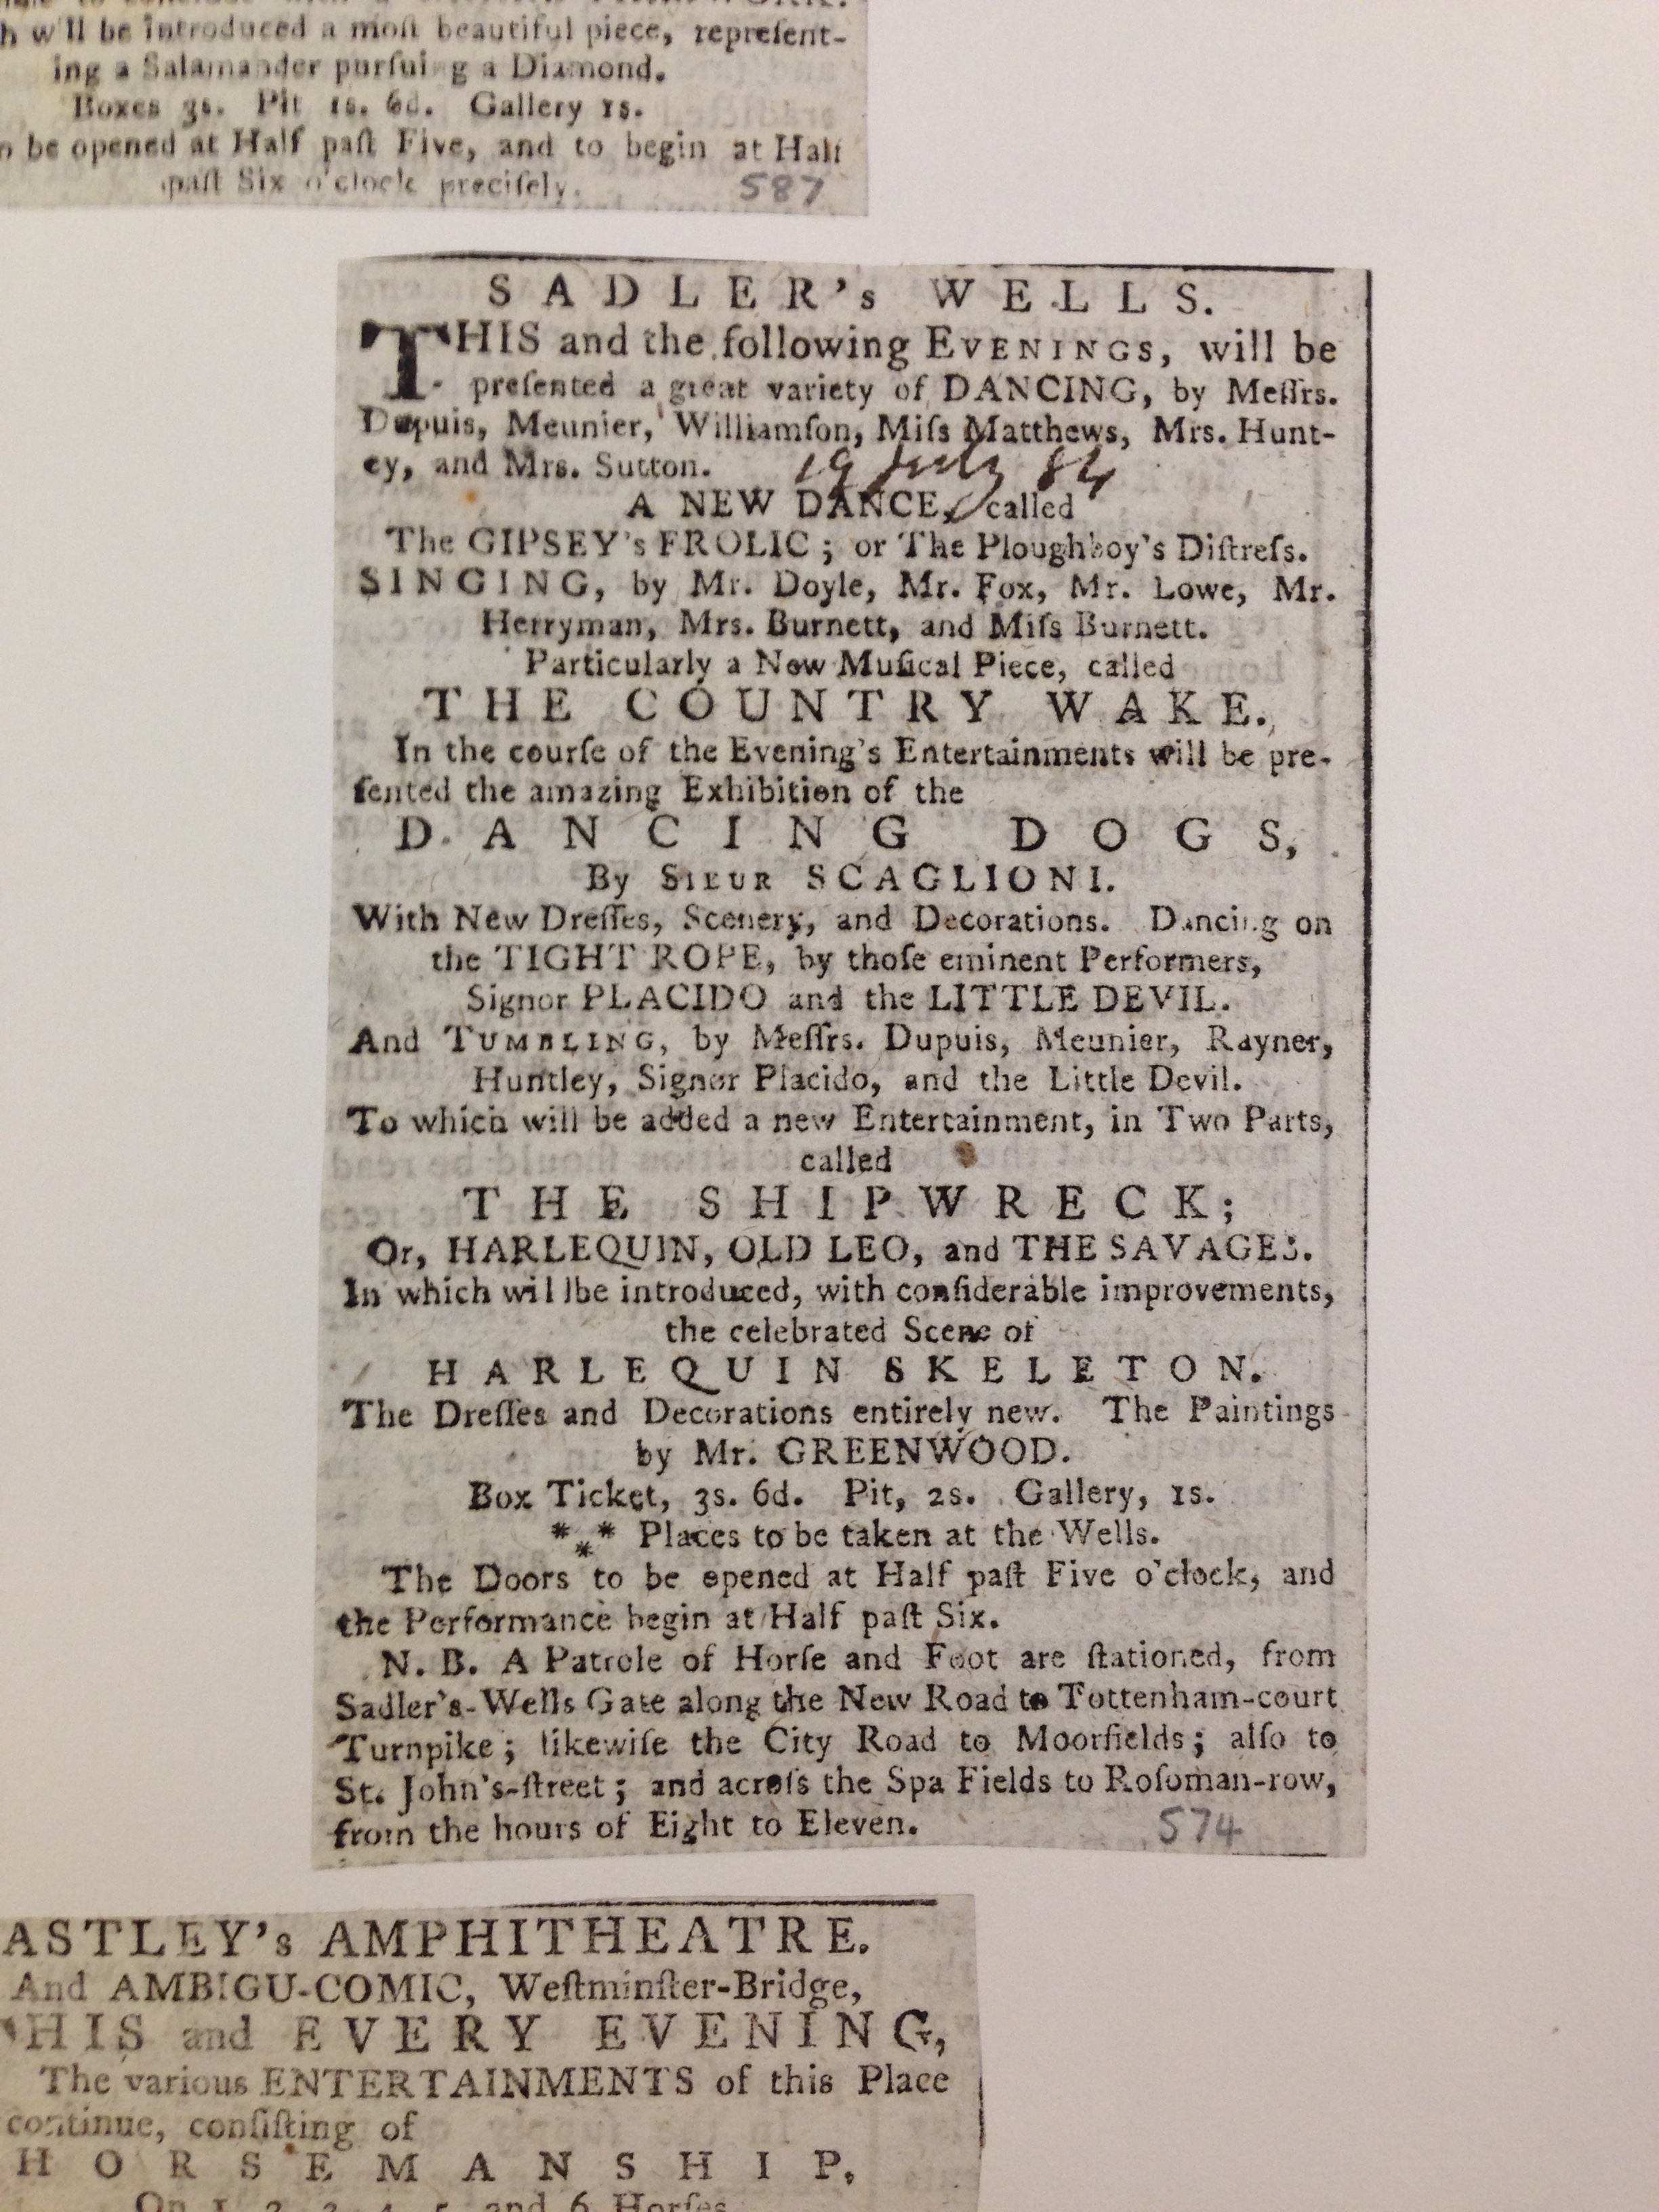 h w'll be introduced a moſt beautiful piece, repreſent-
ing a Salamander purſui g a Diamond.
Boxes 3s. Pit 1s. 6d. Gallery 1s.
be opened at Half paſt Five, and to begin at Half
paſt Six o'clock preciſely.
587
SADLER's WELLS.
THIS and the following EVENINGS, will be
preſented a great variety of DANCING, by Meſſrs.
Dupuis, Meunier, Williamſon, Miſs Matthews, Mrs. Hunt-
ey, and Mrs. Sutton.
19 July 84
A NEW DANCE, called
The GIPSEY's FROLIC; or The Ploughboy's Diſtreſs.
SINGING, by Mr. Doyle, Mr. Fox, Mr. Lowe, Mr.
Herryman, Mrs. Burnett, and Miſs Burnett.
Particularly a New Muſical Piece, called
THE COUNTRY WAKE.
In the courſe of the Evening's Entertainments will be pre-
ſented the amazing Exhibition of the
DANCING DOGS,
By SIEUR SCAGLIONI.
With New Dreſſes, Scenery, and Decorations. Dancing on
the TIGHT ROPE, by thoſe eminent Performers,
Signor PLACIDO and the LITTLE DEVIL.
And TUMBLING, by Meſſrs. Dupuis, Meunier, Rayner,
Huntley, Signor Placido, and the Little Devil.
To which will be added a new Entertainment, in Two Parts,
called
THE SHIPWRECK;
Or, HARLEQUIN, OLD LEO, and THE SAVAGES.
In which wil lbe introduced, with conſiderable improvements,
the celebrated Scene of
HARLEQUIN SKELETON.
The Dreſſes and Decorations entirely new. The Paintings
by Mr. GREENWOOD.
Box Ticket, 3s. 6d. Pit, 2s. Gallery, 1s.
*** Places to be taken at the Wells.
The Doors to be opened at Half paſt Five o'clock, and
the Performance begin at Half paſt Six.
N. B. A Patrole of Horſe and Foot are ſtationed, from
Sadler's-Wells Gate along the New Road to Tottenham-court
Turnpike; likewiſe the City Road to Moorfields; alſo to
St. John's-ſtreet; and acroſs the Spa Fields to Roſoman-row,
from the hours of Eight to Eleven.
574
ASTLEY's AMPHITHEATRE.
And AMBIGU-COMIC, Weſtminſter-Bridge,
HIS and EVERY EVENING,
The various ENTERTAINMENTS of this Place
continue, conſiſting of
HORSEMANSHIP,
On 1, 2, 3, 4, 5, and 6 Horſes